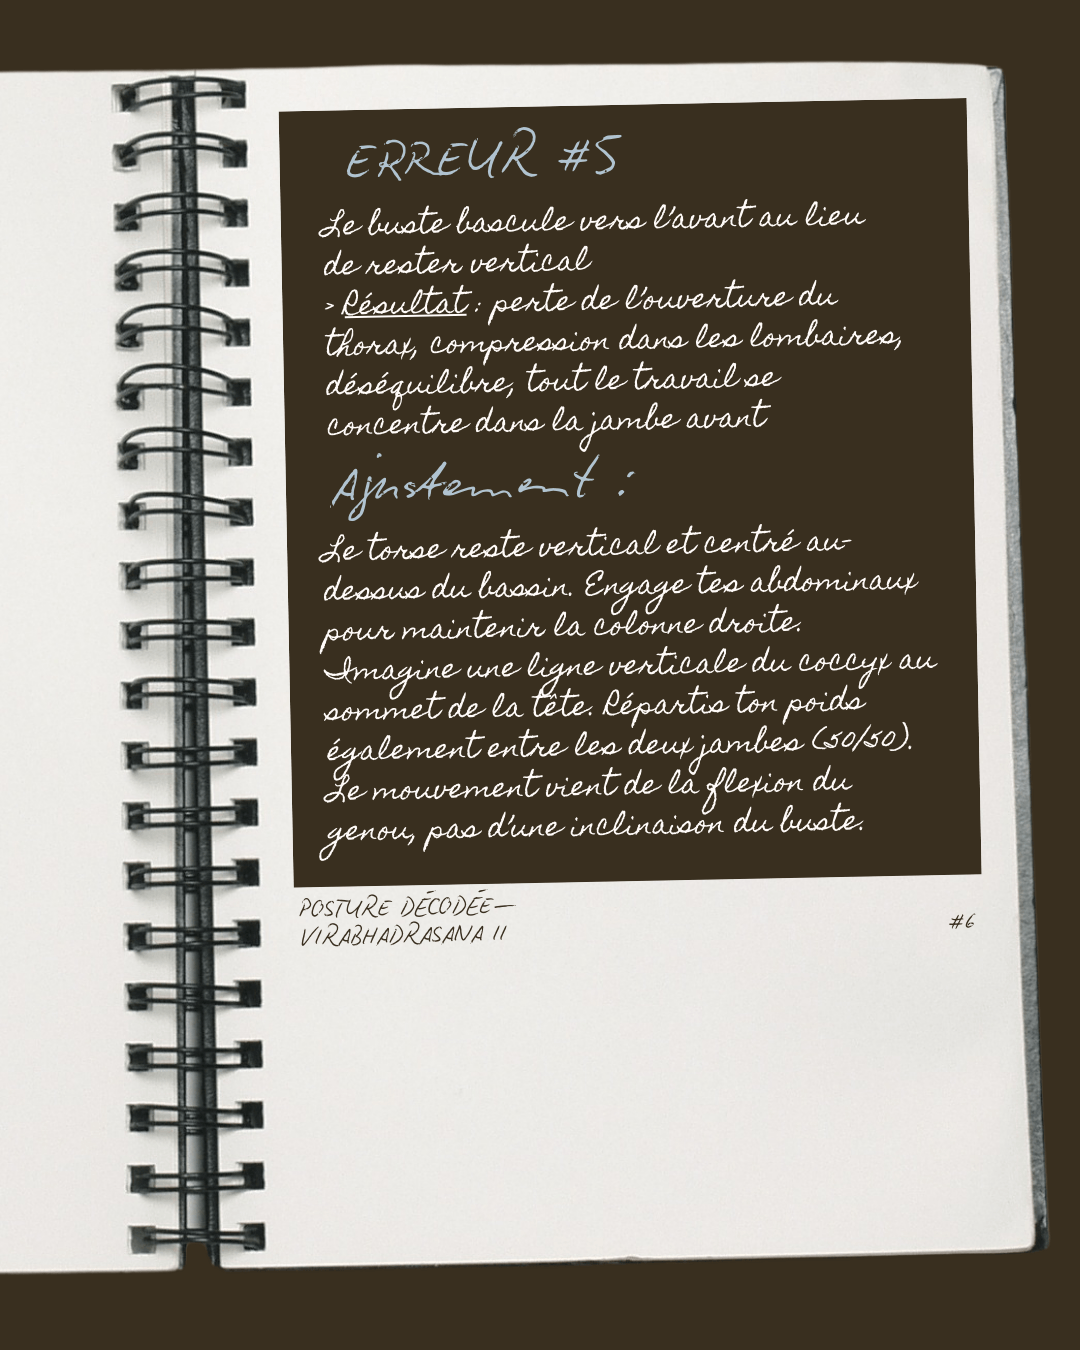 ERREUR #5
Le buste bascule vers l'avant au lieu
de rester vertical
> Résultat : perte de l'ouverture du
thorax, compression dans les lombaires,
déséquilibre, tout le travail se
concentre dans la jambe avant
Ajustement :
Le torse reste vertical et centré au-
dessus du bassin. Engage tes abdominaux
pour maintenir la colonne droite.
Imagine une ligne verticale du coccyx au
sommet de la tête. Répartis ton poids
également entre les deux jambes (50/50).
Le mouvement vient de la flexion du
genou, pas d'une inclinaison du buste.
POSTURE DÉCODÉE—
VIRABHADRASANA II
#6